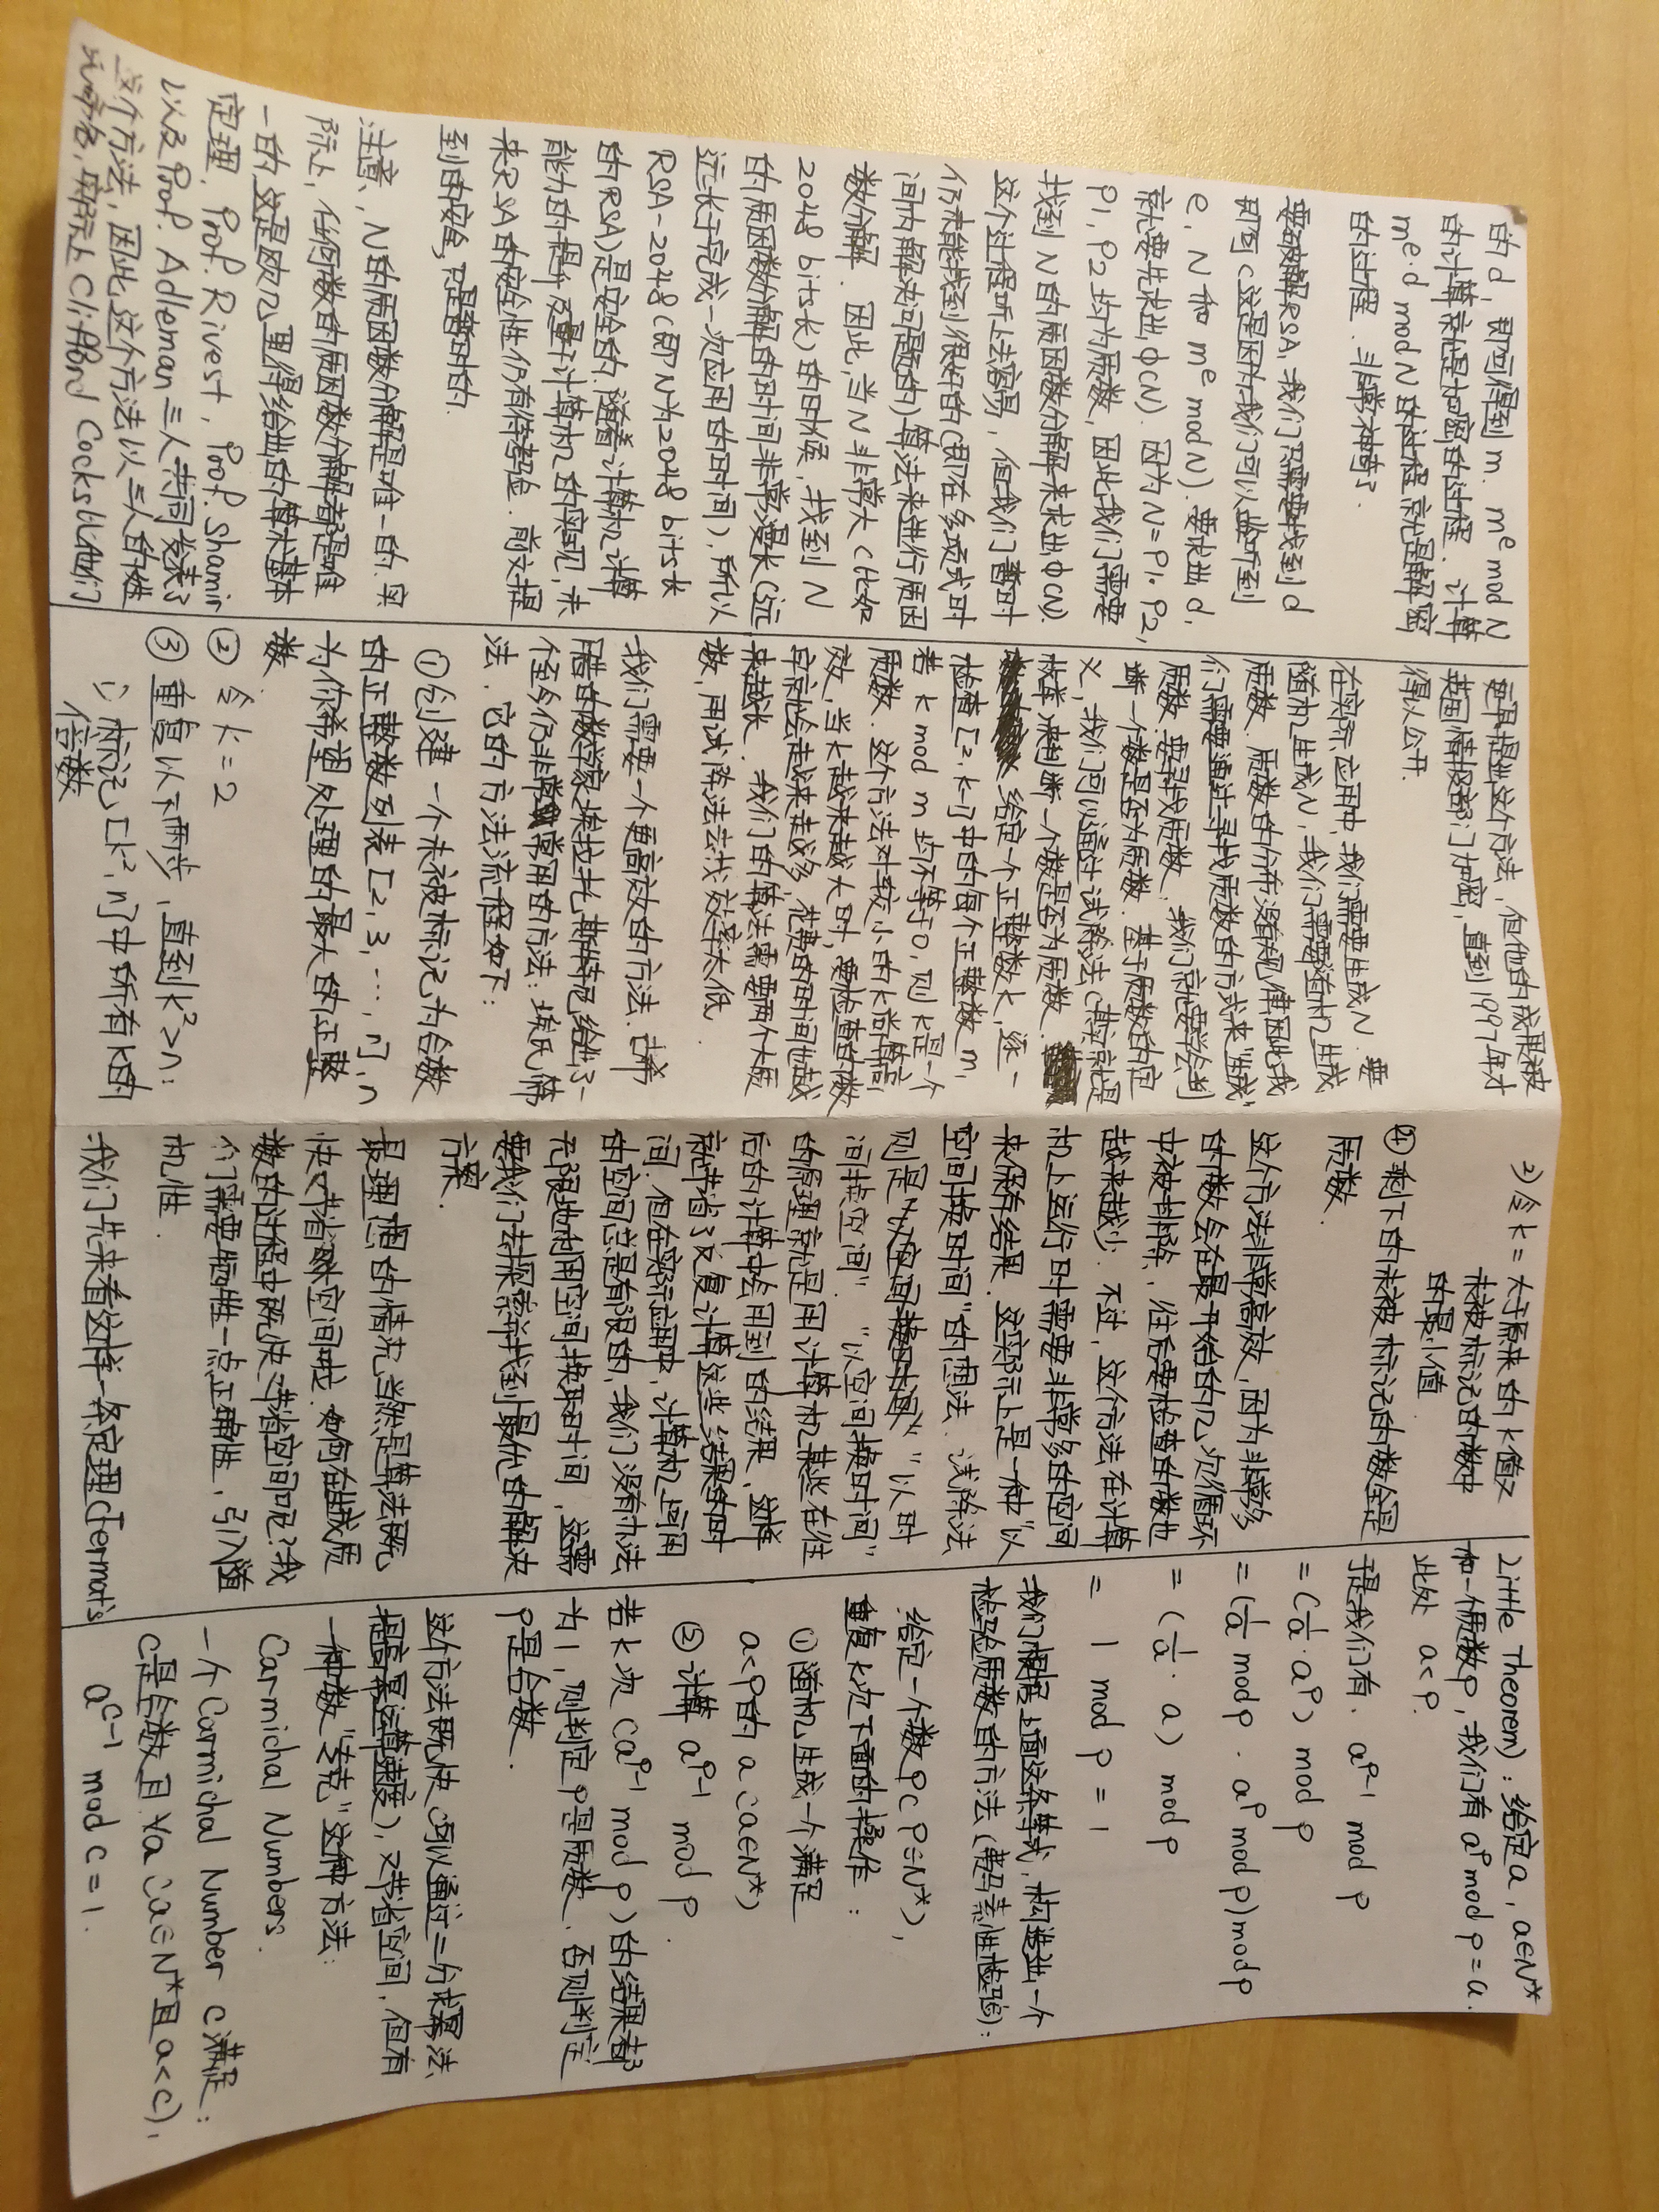 的d，即可得到m. m^e mod N
的计算就是加密的过程. 计算
m^e·d mod N的过程就是解密
的过程. 非常神奇了.
要破解RSA, 我们只需要找到d
即可(这是因为我们可以监听到
e, N和m^e mod N). 要求出d,
就要先求出φ(N). 因为N=P1·P2,
P1, P2均为质数, 因此我们需要
找到N的质因数分解来求出φ(N).
这个过程听上去容易, 但我们暂时
仍未能找到很好的(即在多项式时
间内解决问题的)算法来进行质因
数分解. 因此, 当N非常大(比如
2048 bits长)的时候, 找到N
的质因数分解的时间非常漫长(远
远长于完成一次应用的时间), 所以
RSA-2048(即N为2048 bits长
的RSA)是安全的. 随着计算机计算
能力的提升及量子计算机的实现, 未
来RSA的安全性仍有待考验. 前文提
到的安全, 只是暂时的.
注意, N的质因数分解是唯一的. 实
际上, 任何数的质因数分解都是唯
一的. 这是欧几里得给出的算术基本
定理. Prof. Rivest, Prof. Shamir
以及Prof. Adleman三人共同发表了
这个方法, 因此, 这个方法以三人的姓
氏命名, 实际上Clifford Cocks比他们
更早提出这个方法, 但他的成果被
英国情报部门加密, 直到1997年才
得以公开.
在实际应用中, 我们需要生成N. 要
随机生成N, 我们需要随机生成
质数. 质数的分布没有规律因此我
们需要通过寻找质数的方式来"生成"
质数. 要寻找质数, 我们就要学会判
断一个数是否为质数. 基于质数的定
义, 我们可以通过试除法(其实就是
枚举)来判断一个数是否为质数.
给定一个正整数k, 逐一
检查[2, k-1]中的每个正整数m,
若k mod m均不等于0, 则k是一个
质数. 这个方法对较小的k尚算高
效, 当k越来越大时, 要检查的数
字就会越来越多, 花费的时间也越
来越长. 我们的算法需要两个大质
数, 用试除法去找效率太低.
我们需要一个更高效的方法. 古希
腊的数学家埃拉托斯特尼给出了一
个至今仍非常常用的方法: 埃氏筛
法. 它的方法流程如下:
①创建一个未被标记为合数
的正整数列表[2, 3, ···, n], n
为你希望处理的最大的正整
数.
② 令k=2
③ 重复以下两步, 直到k²>n:
i) 标记[k², n]中所有k的
倍数
2) 令k = 大于原来的k值又
未被标记的数中
的最小值
④ 剩下的未被标记的数全是
质数.
这个方法非常高效, 因为非常多
的数会在最开始的几次循环
中被排除, 往后要检查的数也
越来越少. 不过, 这个方法在计算
机上运行时需要非常多的空间
来保存结果. 这实际上是一种"以
空间换时间"的想法. 试除法
则是"以空间换时间" "以时
间换空间". "以空间换时间"
的原理就是用计算机某些在往
后的计算中会用到的结果, 这样
就节省了反复计算这些结果的时
间. 但在实际应用中, 计算机上可用
的空间总是有限的, 我们没有办法
无限地利用空间换取时间, 这需
要我们去探索并找到最优的解决
方案.
最理想的情况当然是算法既
快又节省空间啦. 如何在生成质
数的过程中既快又节省空间呢? 我
们需要牺牲一点正确性, 引入随
机性.
我们先来看这样一条定理(Fermat's
Little Theorem): 给定a, a∈N*
和一个质数p, 我们有a^p mod p = a.
此处 a<p.
于是我们有. a^p-1 mod p
= (1/a · a^p) mod p
= (1/a mod p · a^p mod p) mod p
= (1/a · a) mod p
= 1 mod p = 1
我们根据上面这条等式, 构造出一个
检验质数的方法(费马素性检验):
给定一个数p(p∈N*),
重复k次下面的操作:
①随机生成一个满足
a<p的a(a∈N*)
②计算 a^p-1 mod p.
若k次(a^p-1 mod p)的结果都
为1, 则判定p是质数. 否则判定
p是合数.
这个方法既快(可以通过二分求幂法
提高幂运算速度), 又节省空间, 但有
一种数"专克"这种方法:
Carmichal Numbers.
一个Carmichal Number c满足:
c是合数且∀a(a∈N*且a<c),
a^c-1 mod c = 1.